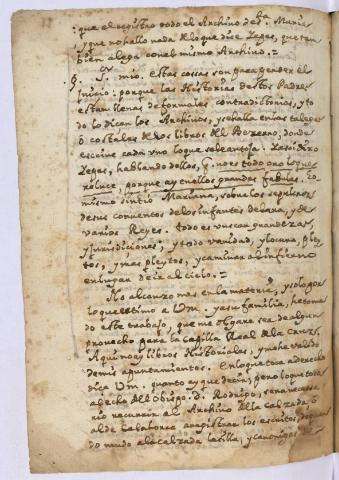 que el registro todo el Archivo de S.ta Maria
y que no hallo nada de lo que dice Zeyes, que tan
bien alega con el mismo Archivo. =
§. S.r mio. estas cossas son para perder el
Juicio: porque las Historias destos Padres
estan llenas de formales contradictorias, y to
do lo dicen los Archivos, y se halla en los
o costales de los libros del Bezerro, donde
escrive cada uno lo que se le antoja. Lo dixo
Zeyes, hablando dellos, q. no es todo oro lo que
reluce, porque ay en ellos grandes fabulas. Lo
mismo sintio Mariana, sobre los sepulcros
de sus conventos de los infantes de Lara, y de
varios Reyes. todo es vuscar grandezas,
y Jurisdiciones; y todo vanidad, y locura, y
tos, y mas pleytos, y caminar al infierno
en lugar de ir al cielo. =
No alcanzo mas en la materia, y solo por
lo que estimo a Vm. y a su familia, he toma
do este trabajo, que me olgare sea de algun
provecho para la Capilla Real de la Cruz.
Aqui no ay libros Historiales, y me he valido
de mis apuntamientos. En lo que toca a derecho
dira Vm. quanto ay que decir; pero lo que toca
al echo del Obispo D. Rodrigo, sera necessa
rio recurrir al Archivo de la Calzada o
al de Calahorra a registrar los escritos,
do mudo a la calzada la silla, y canonigos